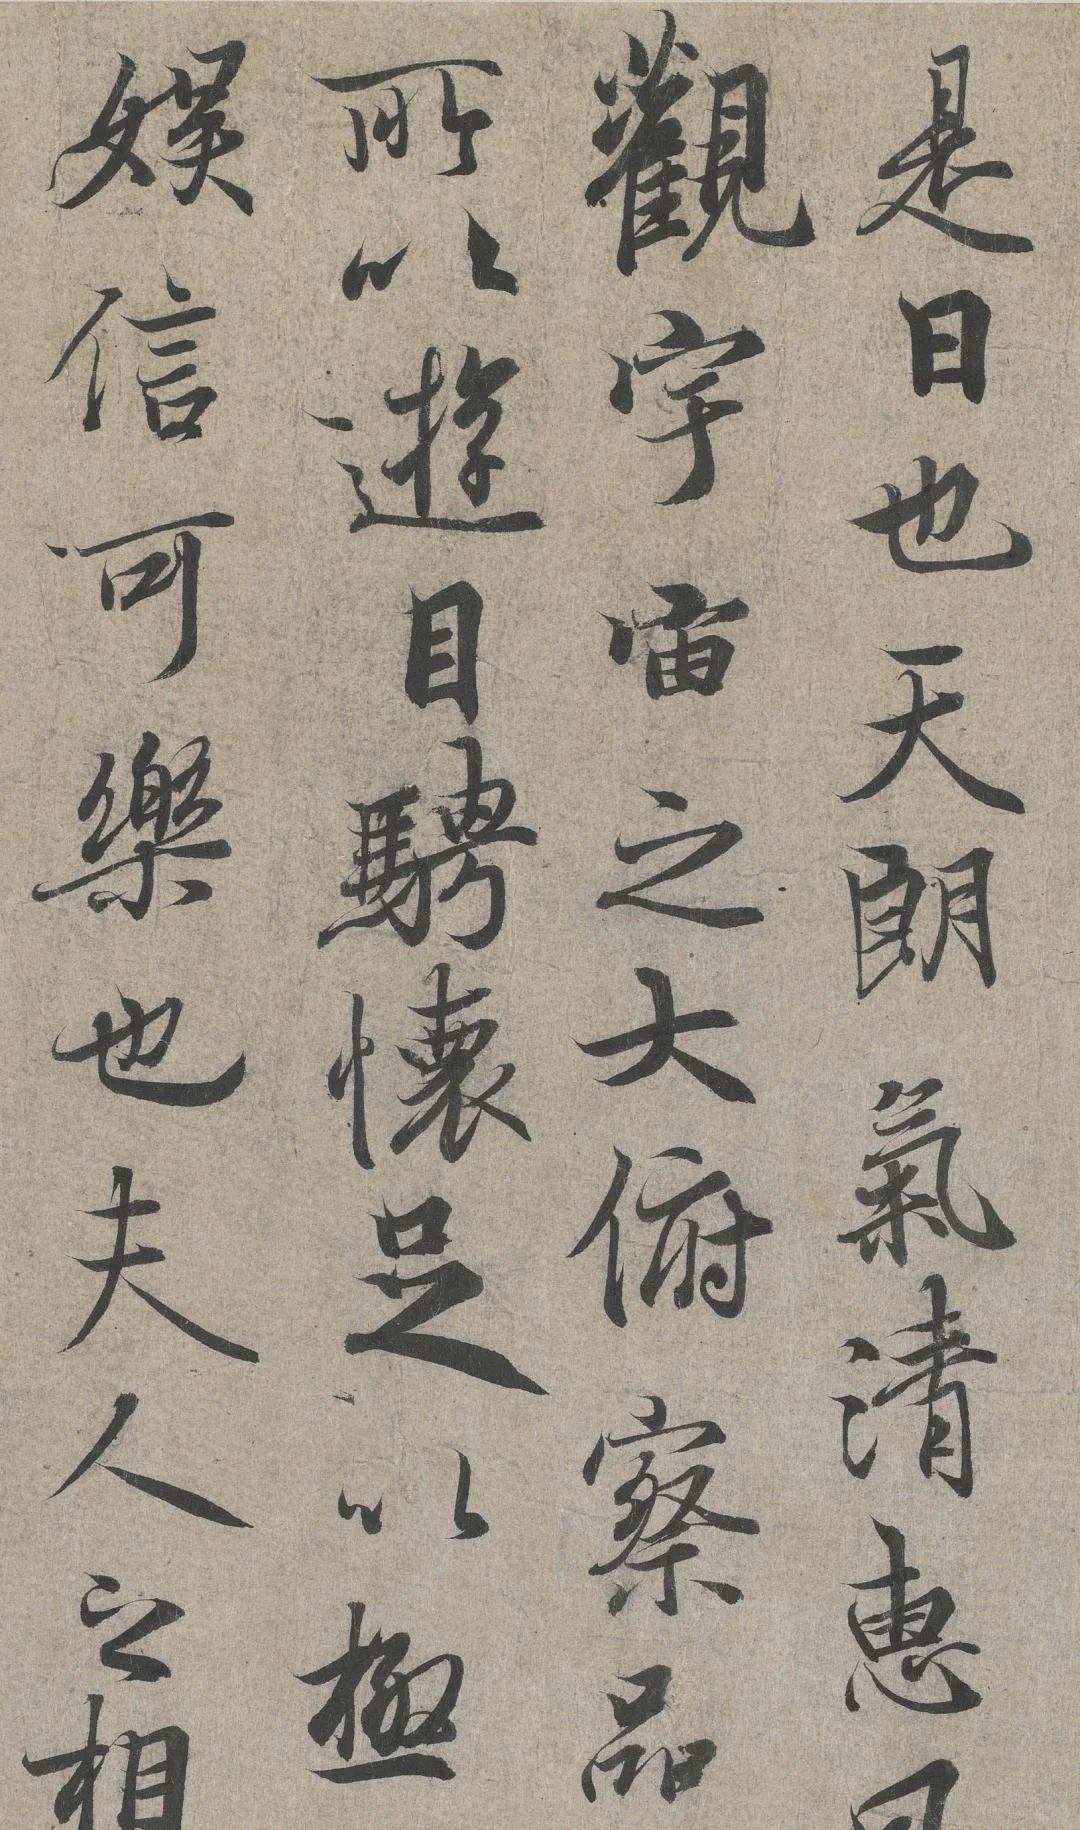 是日也天朗氣清惠
觀宇宙之大俯察品
所以遊目騁懷足以極
娱信可樂也夫人之相